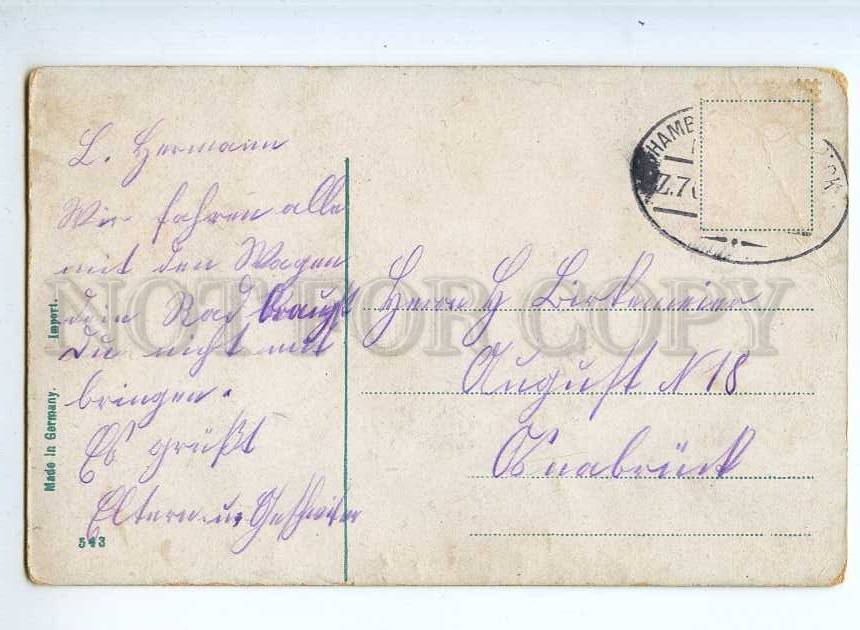 L. Hermann
Wir fahren alle
mit den Wagen
dein Rad braugst
Du nicht mit
bringen.
Es grüßt
Eltern u. Geschwister
Herrn H Birkemeier
August N 18
Osnabrück
HAMB
Z.7
CK
Made in Germany.
Import.
543
NOT FOR COPY